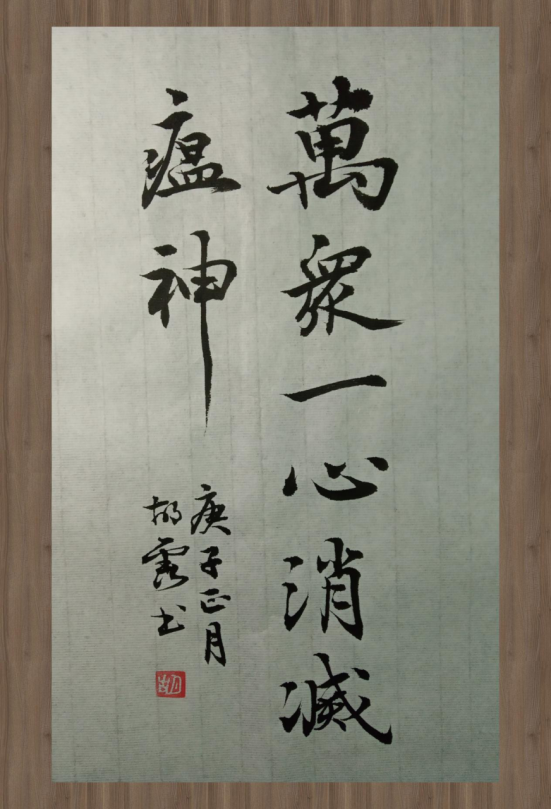 萬衆一心消滅
瘟神
庚子正月
胡露书
胡